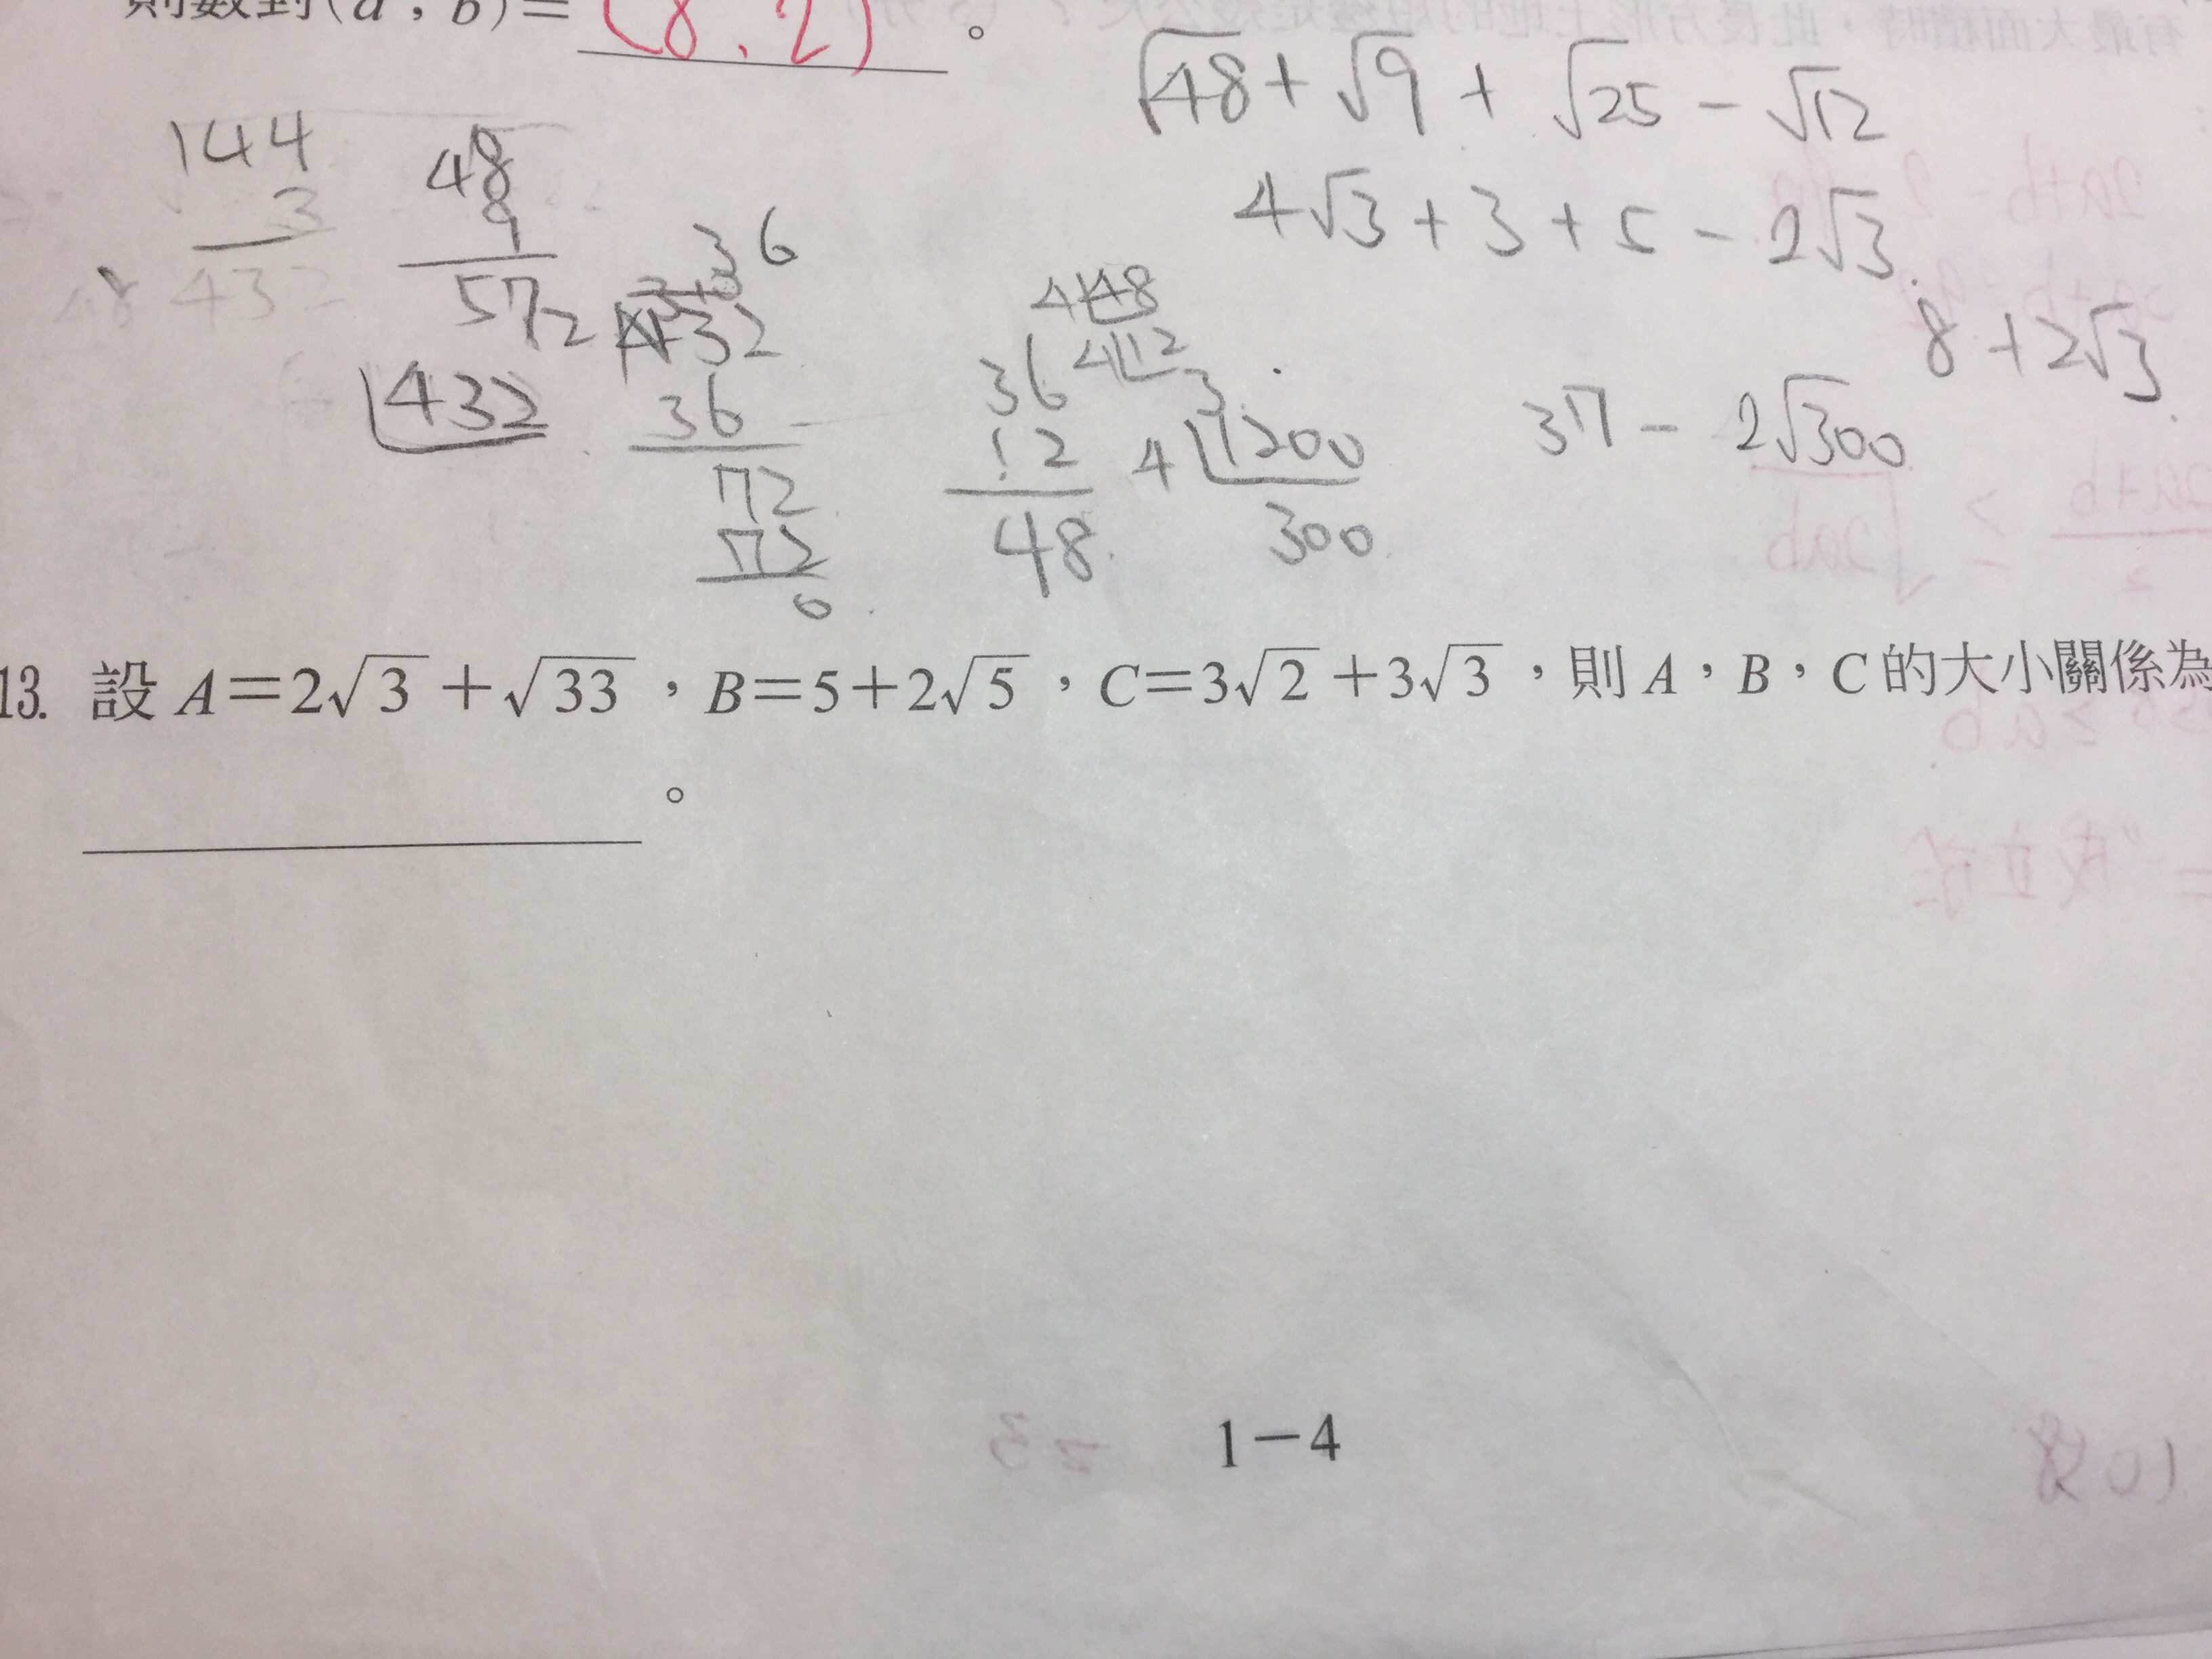 則數對(a，b)=(8,2)。
√48 + √9 + √25 − √12
4√3 + 3 + 5 − 2√3
8 + 2√3
37 − 2√300
144
3
432
48
9
57
2
432
36
432
36
72
72
0
4 48
4 12
3
36
12
48
4 1200
300
13. 設 A=2√3+√33，B=5+2√5，C=3√2+3√3，則 A，B，C 的大小關係為
。
1－4